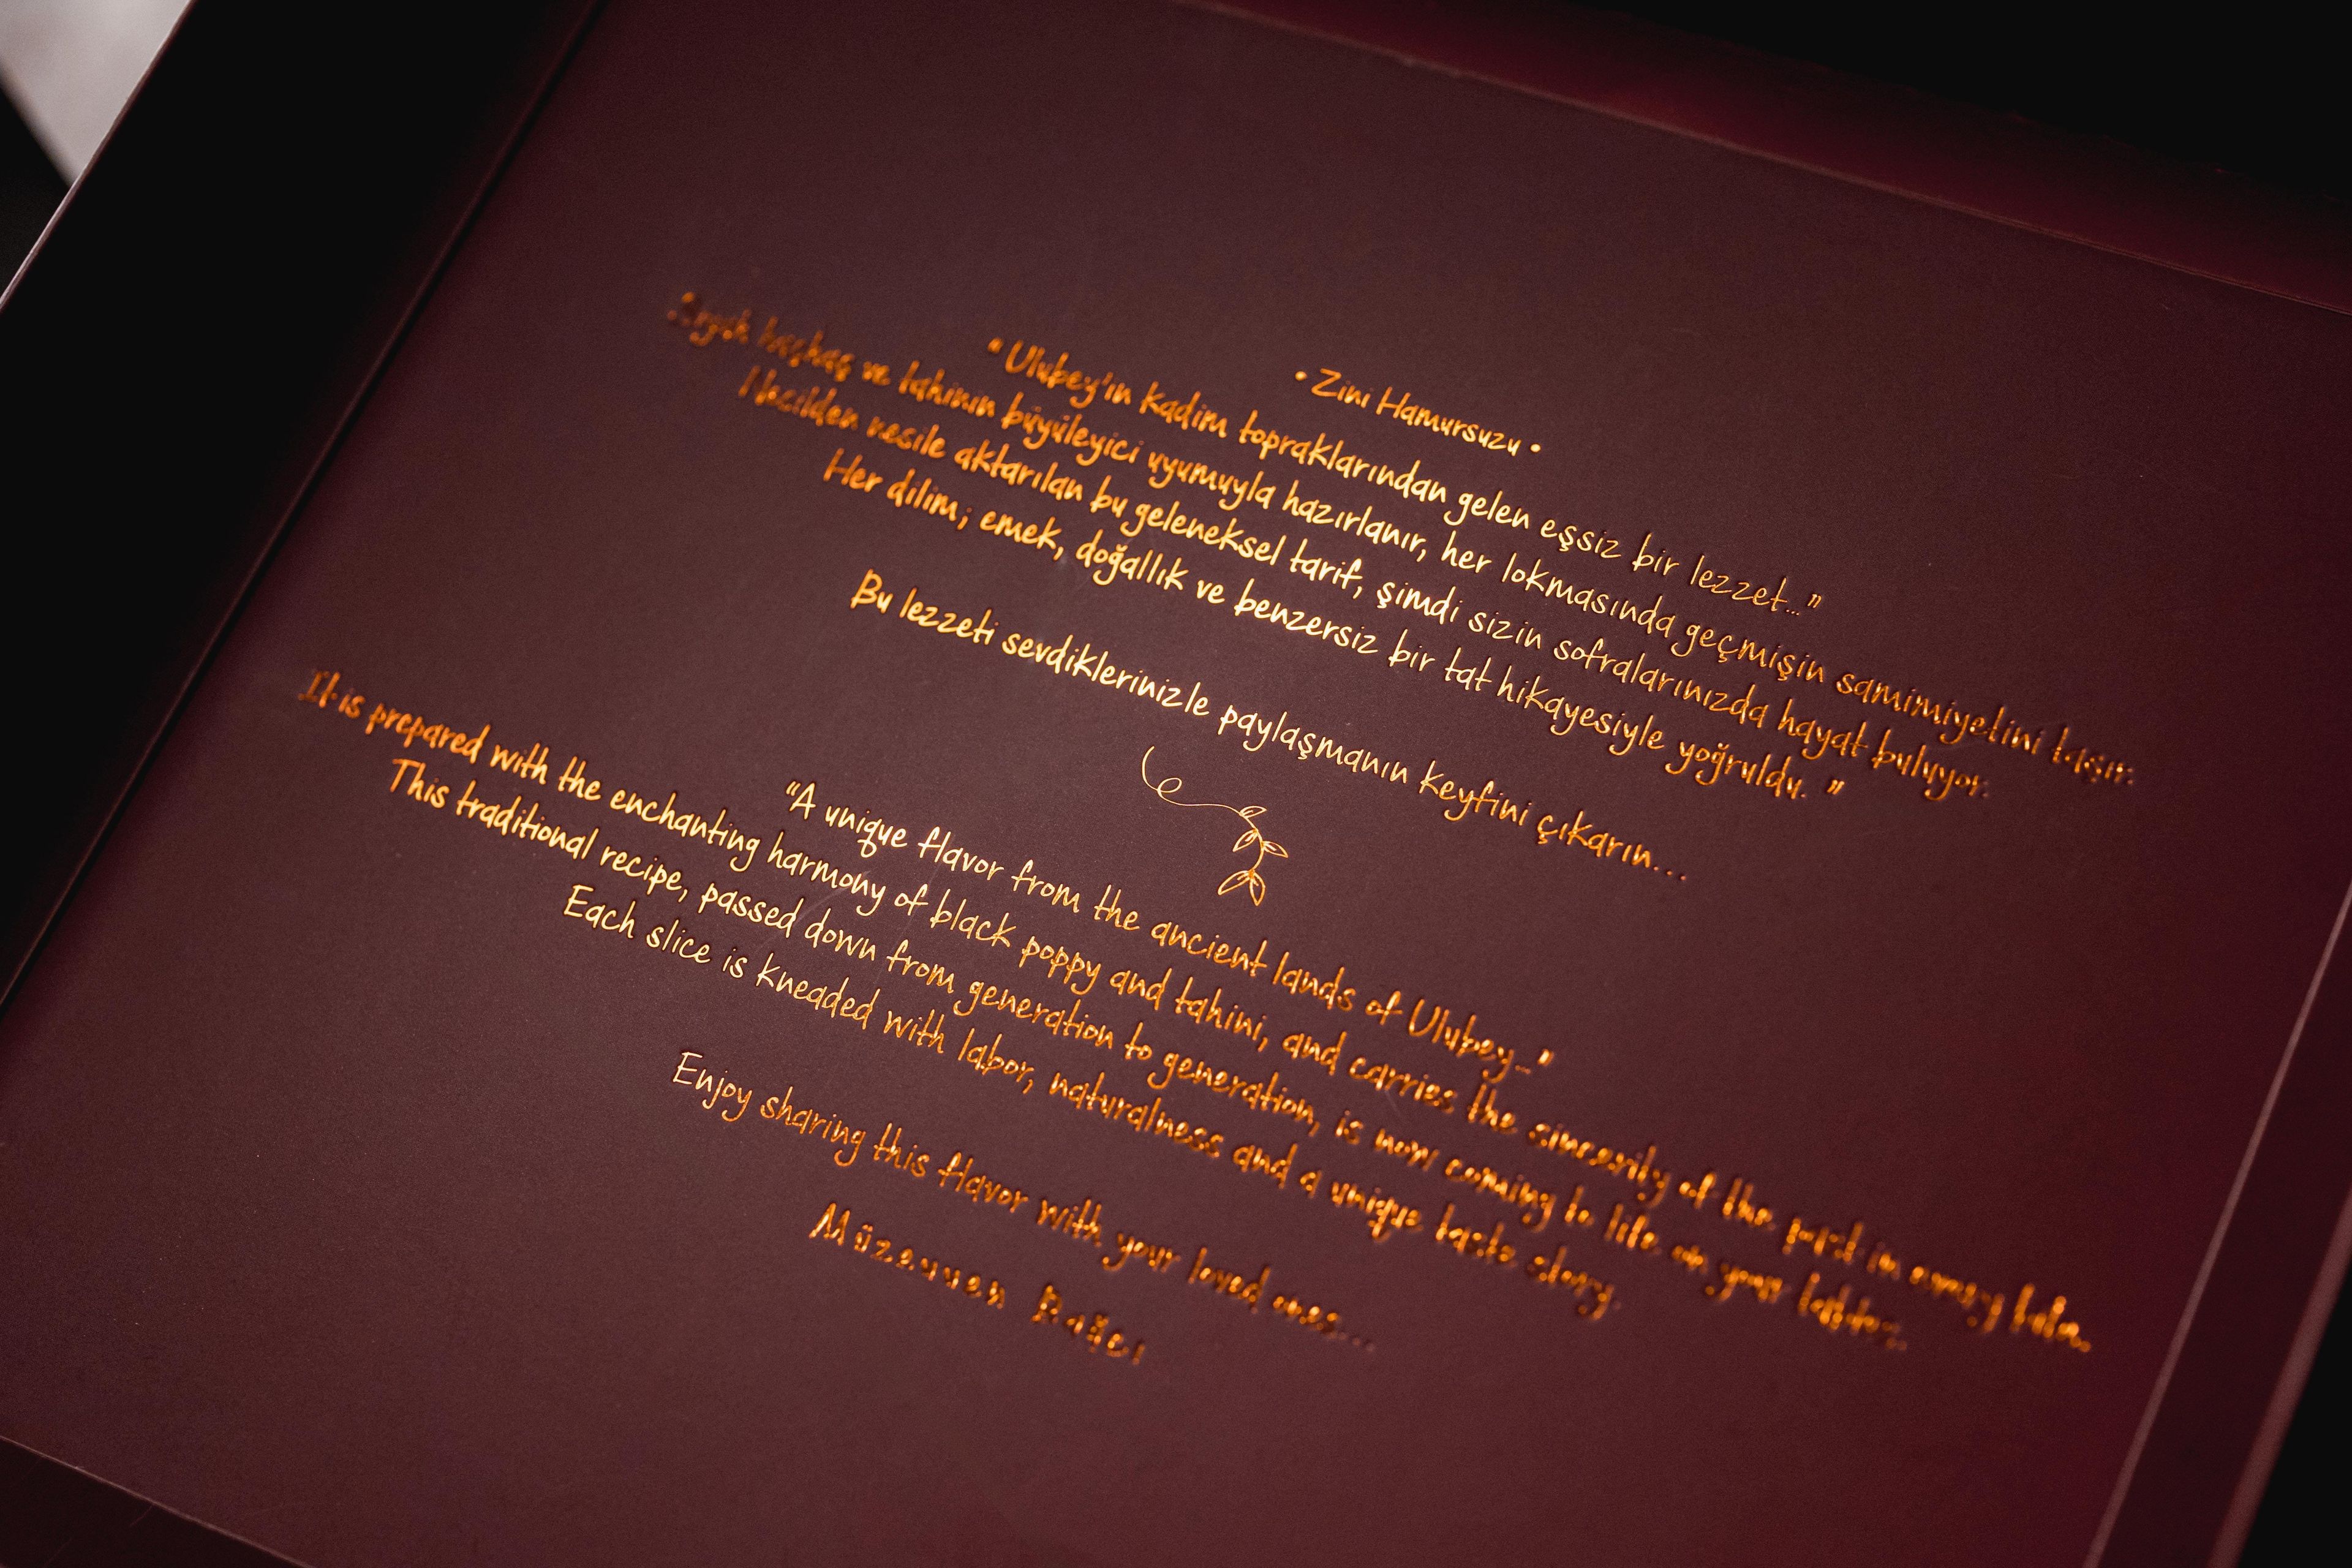 • Zini Hamursuzu •
"Ulubey'in kadim topraklarından gelen eşsiz bir lezzet..."
Siyah haşhaş ve tahinin büyüleyici uyumuyla hazırlanır, her lokmasında geçmişin samimiyetini taşır.
Nesilden nesile aktarılan bu geleneksel tarif, şimdi sizin sofralarınızda hayat buluyor.
Her dilim; emek, doğallık ve benzersiz bir tat hikayesiyle yoğruldu. "
Bu lezzeti sevdiklerinizle paylaşmanın keyfini çıkarın...
"A unique flavor from the ancient lands of Ulubey..."
It is prepared with the enchanting harmony of black poppy and tahini, and carries the sincerity of the past in every bite.
This traditional recipe, passed down from generation to generation, is now coming to life on your tables.
Each slice is kneaded with labor, naturalness and a unique taste story.
Enjoy sharing this flavor with your loved ones...
Müzeyyen Bağcı